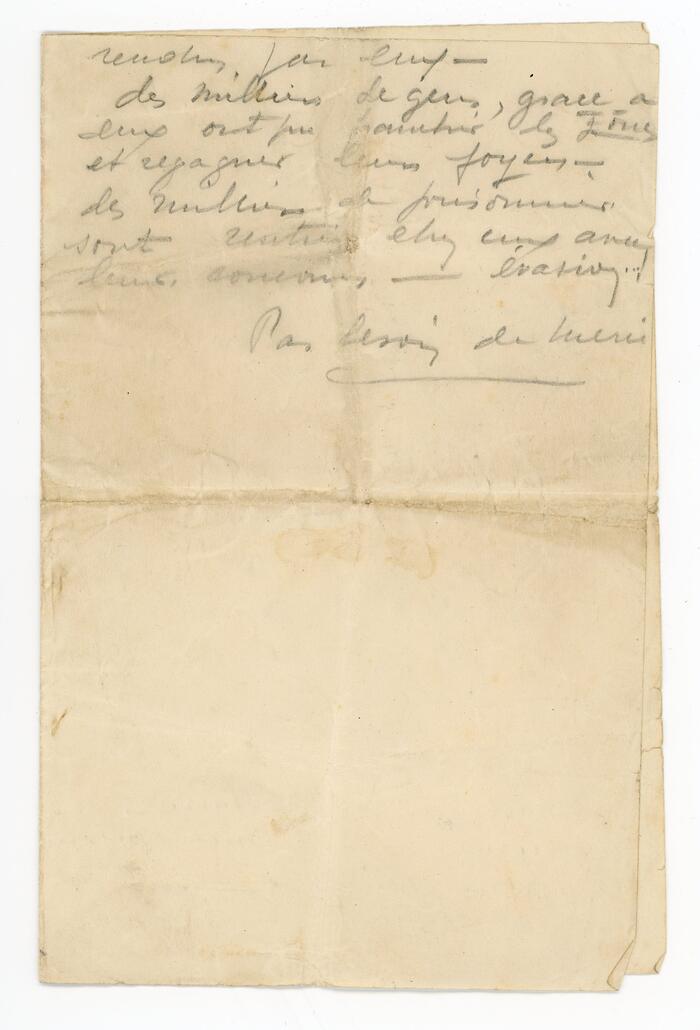 rendus par eux —
des milliers de gens, grace a
eux ont pu franchir les Zones
et regagner leurs foyers —
des milliers de prisonniers
sont rentrés chez eux avec
leurs concours — évasion..!
Pas besoin de merci